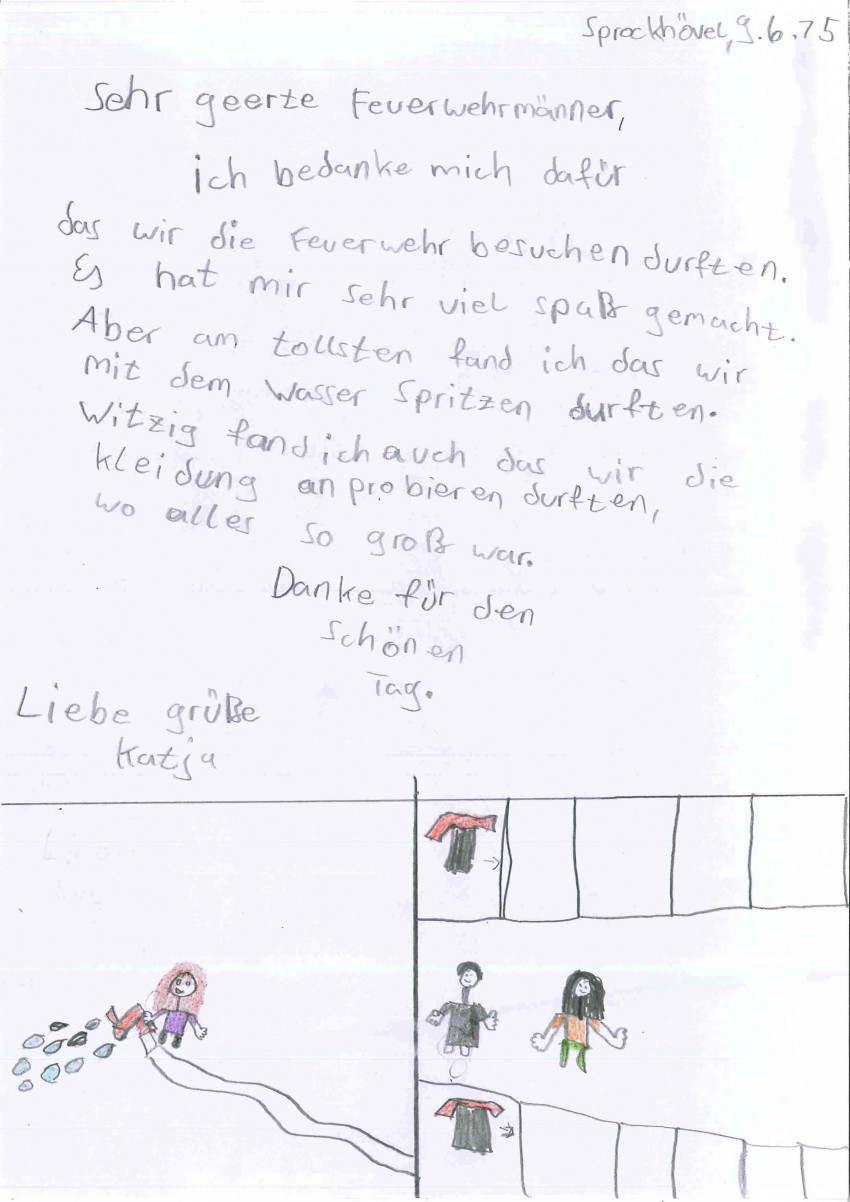 Sprockhövel, 9.6.75
Sehr geerte Feuerwehrmänner,
ich bedanke mich dafür
das wir die Feuerwehr besuchen durften.
Es hat mir sehr viel spaß gemacht.
Aber am tollsten fand ich das wir
mit dem Wasser Spritzen durften.
Witzig fand ich auch das wir die
kleidung anprobieren durften,
wo alles so groß war.
Danke für den
schönen
Tag.
Liebe grüße
Katja